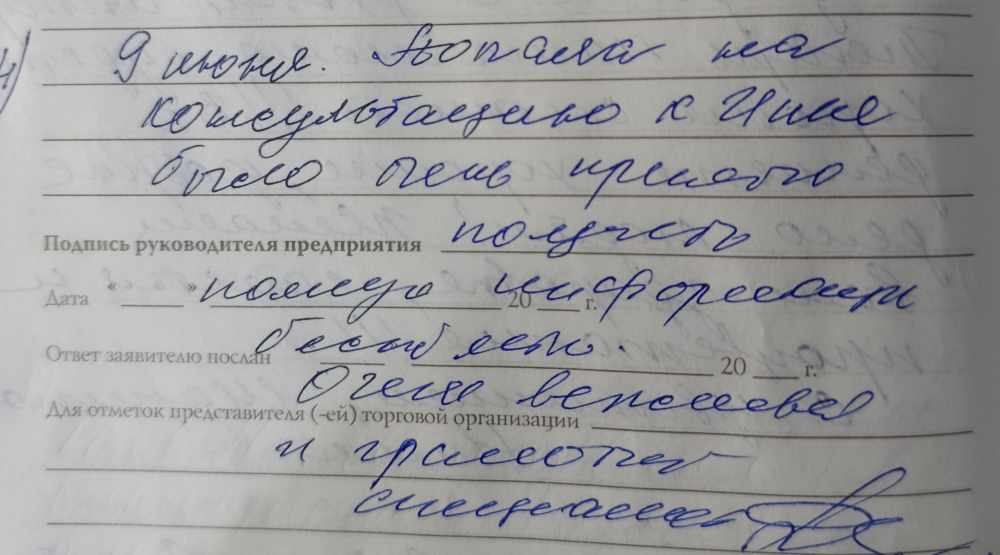 4)
9 июня. Попала на
консультацию к Инне
было очень приятно
Подпись руководителя предприятия получить
Дата "____" полную 20 ___ г. информаци
Ответ заявителю послан 20 ___ г.
Очень вежливая
Для отметок представителя (-ей) торговой организации
и грамотный
специалист